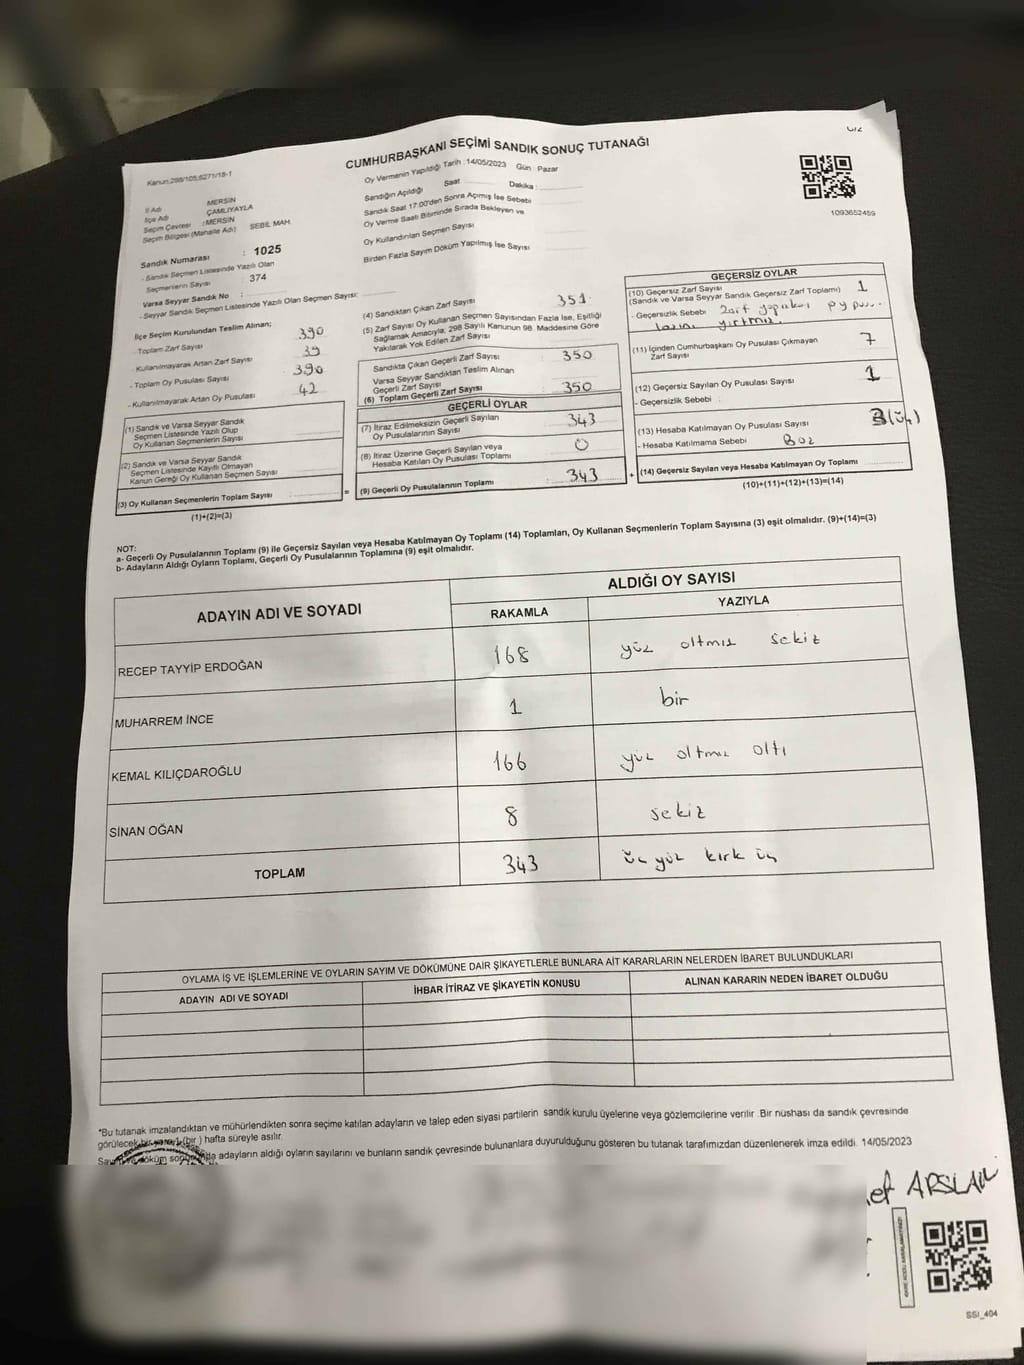 CUMHURBAŞKANI SEÇİMİ SANDIK SONUÇ TUTANAĞI
Kanun:298/105,6271/18-1
1093652459
İl Adı MERSİN
İlçe Adı ÇAMLIYAYLA
Seçim Çevresi :MERSİN
Seçim Bölgesi (Mahalle Adı) SEBİL MAH.
Sandık Numarası : 1025
- Sandık Seçmen Listesinde Yazılı Olan
Seçmenlerin Sayısı : 374
Varsa Seyyar Sandık No :
- Seyyar Sandık Seçmen Listesinde Yazılı Olan Seçmen Sayısı:
Oy Vermenin Yapıldığı Tarih :14/05/2023 Gün : Pazar
Sandığın Açıldığı Saat Dakika :
Sandık Saat 17:00'den Sonra Açımış İse Sebebi
Oy Verme Saati Bitiminde Sırada Bekleyen ve
Oy Kullandırılan Seçmen Sayısı
Birden Fazla Sayım Döküm Yapılmış İse Sayısı
İlçe Seçim Kurulundan Teslim Alınan;
- Toplam Zarf Sayısı 390
- Kullanılmayarak Artan Zarf Sayısı 39
- Toplam Oy Pusulası Sayısı 390
- Kullanılmayarak Artan Oy Pusulası 42
(1) Sandık ve Varsa Seyyar Sandık
Seçmen Listesinde Yazılı Olup
Oy Kullanan Seçmenlerin Sayısı
(2) Sandık ve Varsa Seyyar Sandık
Seçmen Listesinde Kayıtlı Olmayan
Kanun Gereği Oy Kullanan Seçmen Sayısı
(3) Oy Kullanan Seçmenlerin Toplam Sayısı
(1)+(2)=(3)
=
(4) Sandıktan Çıkan Zarf Sayısı 351
(5) Zarf Sayısı Oy Kullanan Seçmen Sayısından Fazla İse, Eşitliği
Sağlamak Amacıyla, 298 Sayılı Kanunun 98. Maddesine Göre
Yakılarak Yok Edilen Zarf Sayısı
Sandıkta Çıkan Geçerli Zarf Sayısı 350
Varsa Seyyar Sandıktan Teslim Alınan
Geçerli Zarf Sayısı
(6) Toplam Geçerli Zarf Sayısı 350
GEÇERLİ OYLAR
(7) İtiraz Edilmeksizin Geçerli Sayılan
Oy Pusulalarının Sayısı 343
(8) İtiraz Üzerine Geçerli Sayılan veya
Hesaba Katılan Oy Pusulası Toplamı 0
(9) Geçerli Oy Pusulalarının Toplamı 343
+
GEÇERSİZ OYLAR
(10) Geçersiz Zarf Sayısı 1
(Sandık ve Varsa Seyyar Sandık Geçersiz Zarf Toplamı)
- Geçersizlik Sebebi
yırtmız
(11) İçinden Cumhurbaşkanı Oy Pusulası Çıkmayan
Zarf Sayısı 7
(12) Geçersiz Sayılan Oy Pusulası Sayısı 1
- Geçersizlik Sebebi :
(13) Hesaba Katılmayan Oy Pusulası Sayısı
- Hesaba Katılmama Sebebi
(14) Geçersiz Sayılan veya Hesaba Katılmayan Oy Toplamı
(10)+(11)+(12)+(13)=(14)
NOT:
a- Geçerli Oy Pusulalarının Toplamı (9) ile Geçersiz Sayılan veya Hesaba Katılmayan Oy Toplamı (14) Toplamları, Oy Kullanan Seçmenlerin Toplam Sayısına (3) eşit olmalıdır. (9)+(14)=(3)
b- Adayların Aldığı Oyların Toplamı, Geçerli Oy Pusulalarının Toplamına (9) eşit olmalıdır.
ADAYIN ADI VE SOYADI ALDIĞI OY SAYISI
RAKAMLA YAZIYLA
RECEP TAYYİP ERDOĞAN 168 yüz altmış sekiz
MUHARREM İNCE 1 bir
KEMAL KILIÇDAROĞLU 166 yüz altmış altı
SİNAN OĞAN 8 sekiz
TOPLAM 343 üç yüz kırk üç
OYLAMA İŞ VE İŞLEMLERİNE VE OYLARIN SAYIM VE DÖKÜMÜNE DAİR ŞİKAYETLERLE BUNLARA AİT KARARLARIN NELERDEN İBARET BULUNDUKLARI
ADAYIN ADI VE SOYADI İHBAR İTİRAZ VE ŞİKAYETİN KONUSU ALINAN KARARIN NEDEN İBARET OLDUĞU
*Bu tutanak imzalandıktan ve mühürlendikten sonra seçime katılan adayların ve talep eden siyasi partilerin sandık kurulu üyelerine veya gözlemcilerine verilir .Bir nüshası da sandık çevresinde
görülecek bir yere 1 (bir ) hafta süreyle asılır.
adayların aldığı oyların sayılarını ve bunların sandık çevresinde bulunanlara duyurulduğunu gösteren bu tutanak tarafımızdan düzenlenerek imza edildi. 14/05/2023
ARSLAN
SSI_404